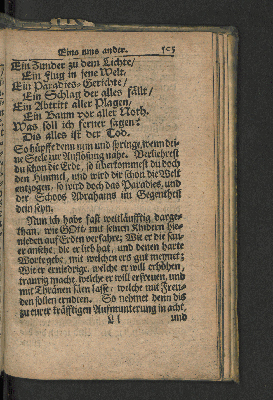 Eins ums ander. 505
Ein Zunder zu dem Lichte/
Ein flug in jene Welt.
Ein Paradies-Gerichte/
Ein Schlag der alles fällt/
Ein Abtritt aller Plagen/
Ein Baum vor aller Noth.
Was soll ich ferner sagen?
Dis alles ist der Tod.
So hüpfft denn nun und springe, wenn dei-
ne Seele zur Auflösung nahe. Verliehrest
du schon die Erde, so überkommest du doch
den Himmel, und wird dir schon die Welt
entzogen, so wird doch das Paradies, und
der Schoos Abrahams im Gegentheil
dein seyn.
Nun ich habe fast weitläufftig darge-
than, wie GOtt mit seinen Kindern hie-
nieden auf Erden verfahre; Wie er die sau-
er ansehe, die er lieb hat, und denen harte
Worte gebe, mit welchen ers gut meynet;
Wie er erniedrige, welche er will erhöhen,
traurig mache, welche er will erfreuen, und
mit Thränen säen lasse, welche mit Freu-
den sollen erndten. So nehmet denn dis
zu eurer kräfftigen Aufmunterung in acht,
und